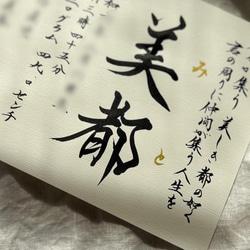 が集う 美しき 都の如く
君の周りに仲間が集う人生を
みと
美都
和
三時四十五分
グラム 四九 センチ